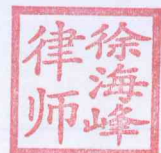 徐海峰
律师